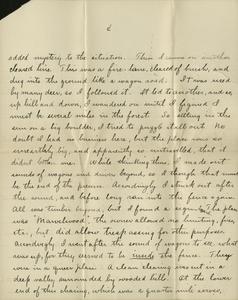 2
added mystery to the situation. Then I came on another
cleared line. This was a fire-lane, cleared of brush, and
dug into the ground like a wagon road. It was used
by many deer, so I followed it. It led to another, and so,
up hill and down, I wandered on until I figured I
must be several miles in the forest. So sitting in the
sun on a big boulder, I tried to puzzle it all out. No
doubt it had no business here, but the place was so
uncarthly big, and apparently so untravelled, that it
didn't bother me. While thinking thus, I made out
sounds of wagons and drivers beyond, so I thought that must
be the end of the premises. Accordingly I struck out after
the sound, and before long ran into the fence again.
All was timber beyond, but I found a sign,
was "Marvelwood", the owner allowed no hunting, fires,
etc., but did allow trespassing for other purposes.
Accordingly I went after the sound of wagons to see what
was up, for they seemed to be inside the fence. They
were in a queer place. A clean clearing ran in a
deep valley, surrounded by wooded hills. At the lower
end of this clearing, which was a quarter mile across,